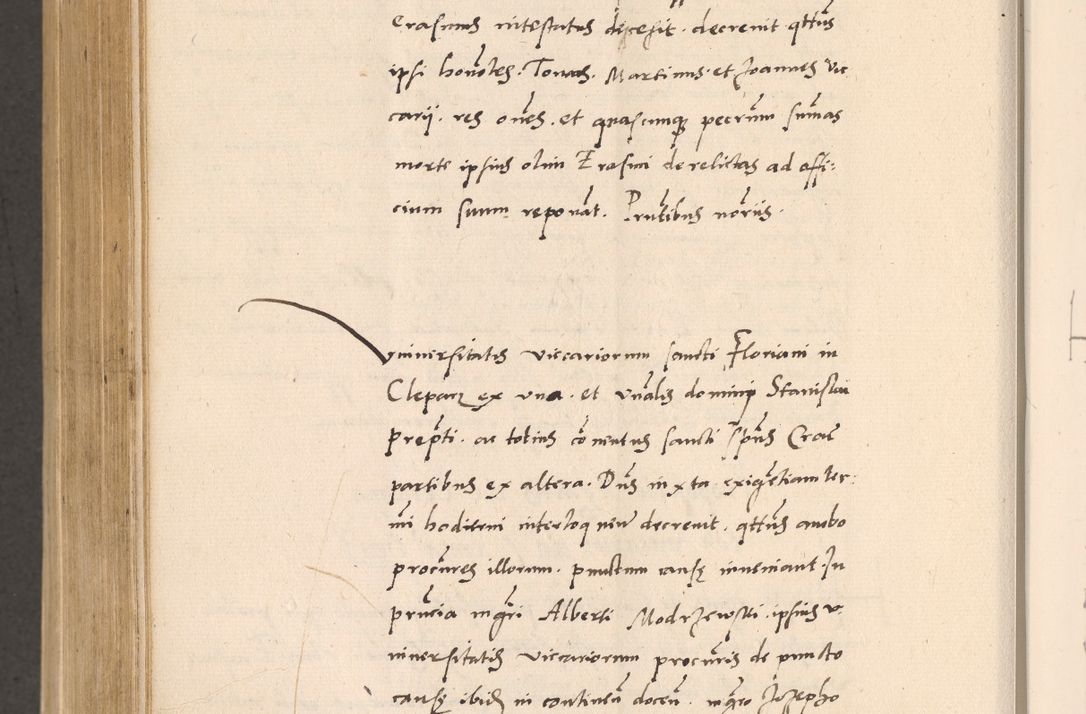 Erasmus intestatus decesit. decrevit qttus
ipsi honotes. Tomas. Martinus. et Joannes vic
carij. res omes. et quascunqz pecrum sumas
morte ipsius olim Erasmi derelictas ad offi:
cium suum reponat. Prntibus notriis.
Universitatis viccariorum sancti Floriani in
Clepars ex una. et vnalis domini Stanislai
prepti. ac totius conventus sancti Spus Crac
partibus ex altera. Dns in xta exigetiam ter:
mi hodierni interloq decrevit. qttus ambo
procures illorum. punctum causę inveniant. In
prncia mgri Alberti Modrzewski. ipsius v:
niversitatis viccariorum procuris de puncto
causę ibidē in continen docen. mgro Jozepho